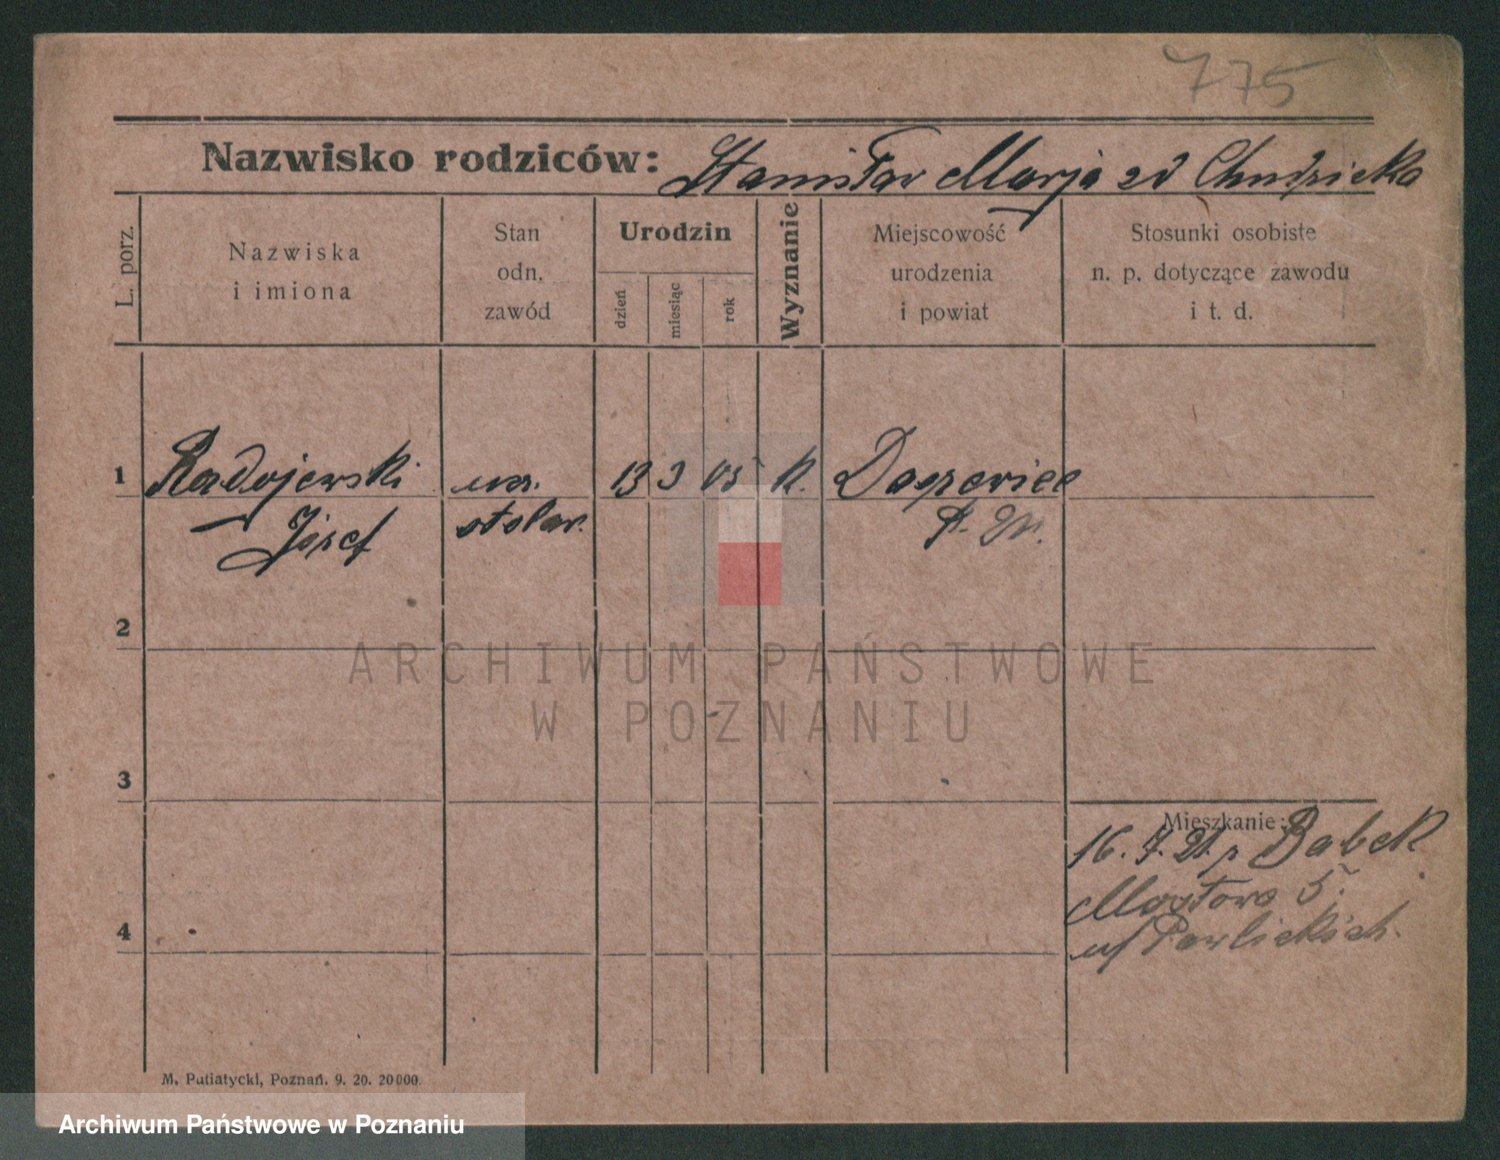 775
Nazwisko rodziców: Stanisław Marja zd Chudzicka
L. porz.
Nazwiska
i imiona
Stan
odn.
zawód
Urodzin
dzień
miesiąc
rok
Wyznanie
Miejscowość
urodzenia
i powiat
Stosunki osobiste
n. p. dotyczące zawodu
i t. d.
1 Radojewski ucz. 13 3 05 k.
Józef stolar.
2
ARCHIWUM PAŃSTWOWE
W POZNANIU
3
Mieszkanie:
16. 7. 21. z Babek
Mostowa 5.
u/ Pawlickich.
4
M. Putiatycki, Poznań. 9. 20. 20000.
Archiwum Państwowe w Poznaniu